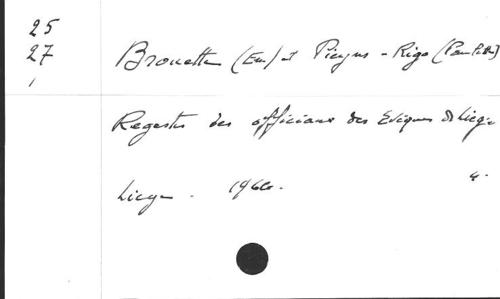 25
27
1
Brouette (Em) et Pieyns-Rigo (Paulette)
Regestes des officiaux des Evêques de Liège
Liège. 1966. 4°